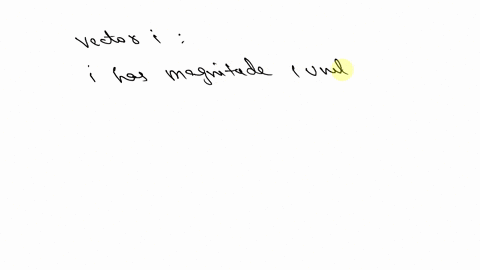 vector i :
i has magnitude 1 unit